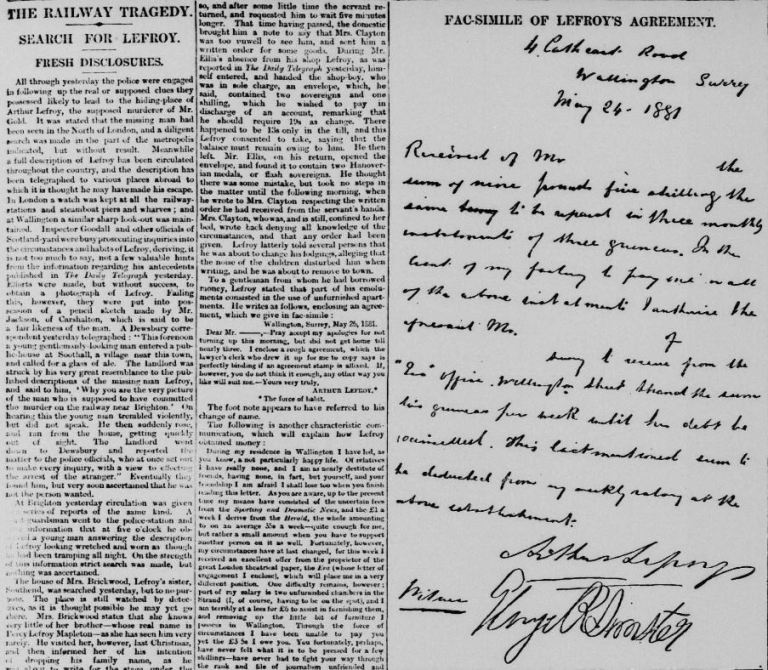 THE RAILWAY TRAGEDY.
SEARCH FOR LEFROY.
FRESH DISCLOSURES.
All through yesterday the police were engaged
in following up the real or supposed clues they
possessed likely to lead to the hiding-place of
Arthur Lefroy, the supposed murderer of Mr.
Gold. It was stated that the missing man had
been seen in the North of London, and a diligent
search was made in the part of the metropolis
indicated, but without result. Meanwhile
a full description of Lefroy has been circulated
throughout the country, and the description has
been telegraphed to various places abroad to
which it is thought he may have made his escape.
In London a watch was kept at all the railway-
stations and steamboat piers and wharves; and
at Wallington a similar sharp look-out was main-
tained. Inspector Goodall and other officials of
Scotland-yard were busy prosecuting inquiries into
the circumstances and habits of Lefroy, deriving, it
is not too much to say, not a few valuable hints
from the information regarding his antecedents
published in The Daily Telegraph yesterday.
Efforts were made, but without success, to
obtain a photograph of Lefroy. Failing
this, however, they were put into pos-
session of a pencil sketch made by Mr.
Jackson, of Carshalton, which is said to be
a fair likeness of the man. A Dewsbury corre-
spondent yesterday telegraphed: "This forenoon
a young gentlemanly-looking man entered a pub-
lic-house at Soothall, a village near this town,
and called for a glass of ale. The landlord was
struck by his very great resemblance to the pub-
lished descriptions of the missing man Lefroy,
and said to him, 'Why you are the very picture
of the man who is supposed to have committed
the murder on the railway near Brighton.' On
hearing this the young man trembled violently,
but did not speak. He then suddenly rose,
and ran from the house, getting quickly
out of sight. The landlord went
down to Dewsbury and reported the
matter to the police officials, who at once set out
to make every inquiry, with a view to effecting
the arrest of the stranger." Eventually they
found him, but very soon ascertained that he was
not the person wanted.
At Brighton yesterday circulation was given
series of reports of the same kind. A
guardsman went to the police-station and
information that at five o'clock he ob-
a young man answering the description
Lefroy looking wretched and worn as though
had been tramping all night. On the strength
this information strict search was made, but
nothing was ascertained.
The house of Mrs. Brickwood, Lefroy's sister,
Southend, was searched yesterday, but to no pur-
pose. The place is still watched by detec-
tives, as it is thought possible he may yet go
there. Mrs. Brickwood states that she knows
very little of her brother—whose real name is
Percy Lefroy Mapleton—as she has seen him very
rarely. He visited her, however, last Christmas,
and then informed her of his intention
of dropping his family name, as he
so, and after some little time the servant re-
turned, and requested him to wait five minutes
longer. That time having passed, the domestic
brought him a note to say that Mrs. Clayton
was too unwell to see him, and sent him a
written order for some goods. During Mr.
Ellis's absence from his shop Lefroy, as was
reported in The Daily Telegraph yesterday, him-
self entered, and handed the shop-boy, who
was in sole charge, an envelope, which, he
said, contained two sovereigns and one
shilling, which he wished to pay in
discharge of an account, remarking that
he should require 19s as change. There
happened to be 13s only in the till, and this
Lefroy consented to take, saying that the
balance must remain owing to him. He then
left. Mr. Ellis, on his return, opened the
envelope, and found it to contain two Hanover-
ian medals, or flash sovereigns. He thought
there was some mistake, but took no steps in
the matter until the following morning, when
he wrote to Mrs. Clayton respecting the written
order he had received from the servant's hands.
Mrs. Clayton, who was, and is still, confined to her
bed, wrote back denying all knowledge of the
circumstances, and that any order had been
given. Lefroy latterly told several persons that
he was about to change his lodgings, alleging that
the noise of the children disturbed him when
writing, and he was about to remove to town.
To a gentleman from whom he had borrowed
money, Lefroy stated that part of his emolu-
ments consisted in the use of unfurnished apart-
ments. He writes as follows, enclosing an agree-
ment, which we give in fac-simile:
Wallington, Surrey, May 25, 1881.
Dear Mr. ——,—Pray accept my apologies for not
turning up this morning, but did not get home till
nearly three. I enclose a rough agreement, which the
lawyer's clerk who drew it up for me to copy says is
perfectly binding if an agreement stamp is affixed. If,
however, you do not think it enough, any other way you
like will suit me.—Yours very truly,
ARTHUR LEFROY.*
* The force of habit.
The foot note appears to have referred to his
change of name.
The following is another characteristic com-
munication, which will explain how Lefroy
obtained money:
During my residence in Wallington I have led, as
you know, a not particularly happy life. Of relatives
I have really none, and I am as nearly destitute of
friends, having none, in fact, but yourself, and your
friendship I am afraid I shall lose too when you finish
reading this letter. As you are aware, up to the present
time my means have consisted of the uncertain fees
from the Sporting and Dramatic News, and the £1 a
week I derive from the Herald, the whole amounting
to on an average 35s a week—quite enough for me,
but rather a small amount when you have to support
another person on it as well. Fortunately, however,
my circumstances have at last changed, for this week I
received an excellent offer from the proprietor of the
great London theatrical paper, the Era (whose letter of
engagement I enclose), which will place me in a very
different position. One difficulty remains, however;
part of my salary is two unfurnished chambers in the
Strand (I, of course, having to be on the spot), and I
am terribly at a loss for £6 to assist in furnishing them,
and removing up the little bit of furniture I
possess in Wallington. Through the force of
circumstances I have been unable to pay you
yet the £3 5s I owe you. You fortunately, perhaps,
have never felt what it is to be pressed for a few
shillings—have never had to fight your way through
the rank and file of journalism unfriended and
FAC-SIMILE OF LEFROY'S AGREEMENT.
4 Cathcart Road
Wallington Surrey
May 24 - 1881
Received of Mr the
sum of nine pounds five shilling the
same to be repaid in three monthly
instalments of three guineas. In the
event of my failing to pay one or all
of the above instalments I authorise the
aforesaid Mr. of
to receive from the
"Era" office. Wellington Street Strand the sum
guineas per week until his debt be
cancelled. This last mentioned sum to
be deducted from my weekly salary at the
above establishment.
Arthur Lefroy
Witness